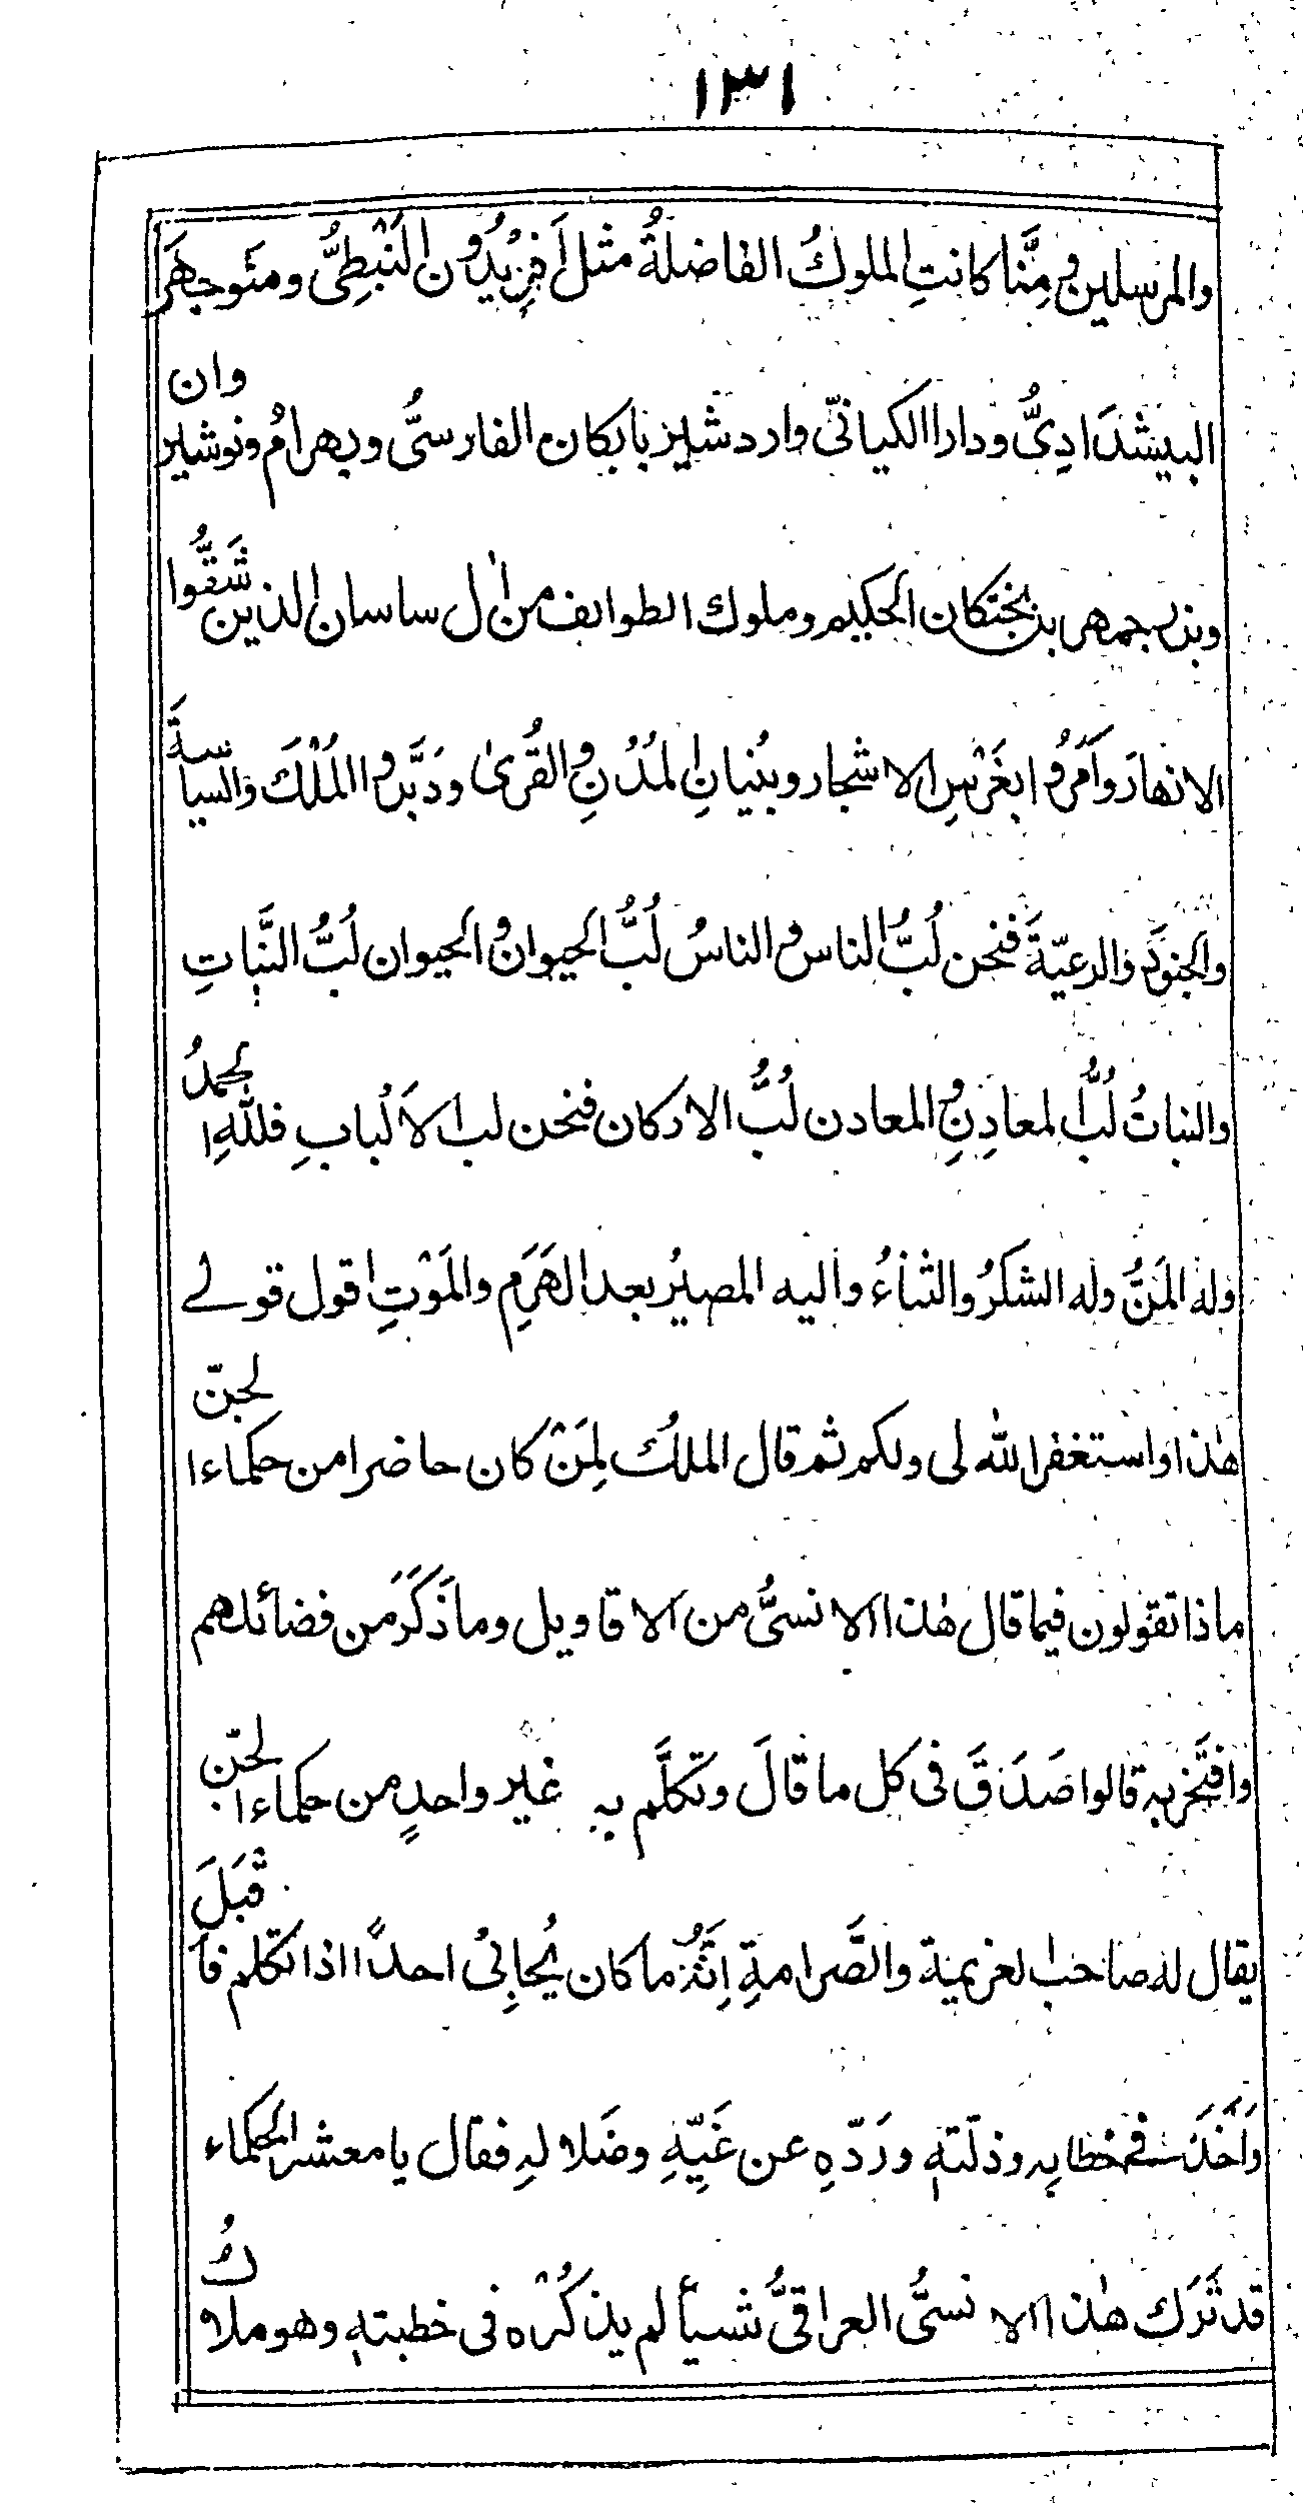 ١٣١
والمرسلين ومِنَّا كانتِ الملوكُ الفاضلةُ مثل اَفرِيُدُون النَبْطِىُّ ومنَوجهرَ
البيشدَادِىُّ ودارا الكيانىّ واردشير بابكان الفارسىُّ وبهرامُ ونوشيروان
وبزرجمهر بن بختكان الحكيم وملوك الطوائف من اٰل ساسان الذين شَقُّوا
الانهارَ واَمَرُوا بغَرْسِ الاشجار وبُنيانِ المُدُنِ والقُرىٰ ودَبَّروا المُلْكَ والسياسةَ
والجنودَ والرعيّةَ فنحن لُبُّ الناس والناسُ لُبُّ الحيوان والحيوان لُبُّ النَّباتِ
والنباتُ لُبُّ المعادِنِ والمعادن لُبُّ الاركان فنحن لب الاَلْبابِ فللّٰهِ الحمدُ
وله المَنُّ وله الشكرُ والثناءُ واليه المصيرُ بعد الهَرَمِ والمَوْتِ اقول قولے
هٰذا واستغفر الله لى ولكم ثم قال الملكُ لِمَنْ كان حاضرا من حكماء الجنّ
ماذا تقولون فيما قال هٰذا الانسىُّ من الاقاويل وما ذَكَرَ من فضائلهم
وافتَخَر به قالوا صَدَقَ فى كل ما قالَ وتكلَّم به غير واحدٍ من حكماء الجنّ
يقال له صاحب العزيمة والصَّرامةِ اِنَّهُ ما كان يُحابِىْ احدًا اذا تكلم فاَقبَلَ
واَخَذَ فى خطابِه وذلّتهٖ ورَدّهِ عن غَيّهِ وضَلالهِ فقال يا معشر الحكماء
قد تَرَك هٰذا الانسىُّ العراقىُّ شيأ لم يذكُرْه فى خطبتهٖ وهو ملاكُ